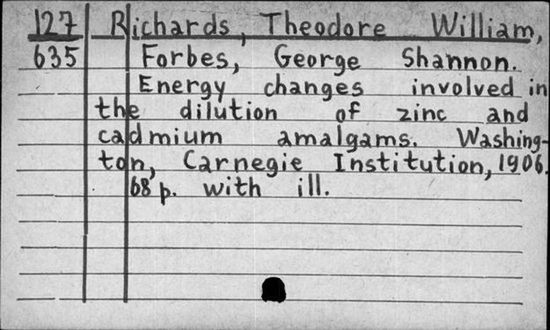 127 Richards, Theodore William,
635 Forbes, George Shannon.
Energy changes involved in
the dilution of zinc and
cadmium amalgams. Washing-
ton, Carnegie Institution, 1906.
68 p. with ill.